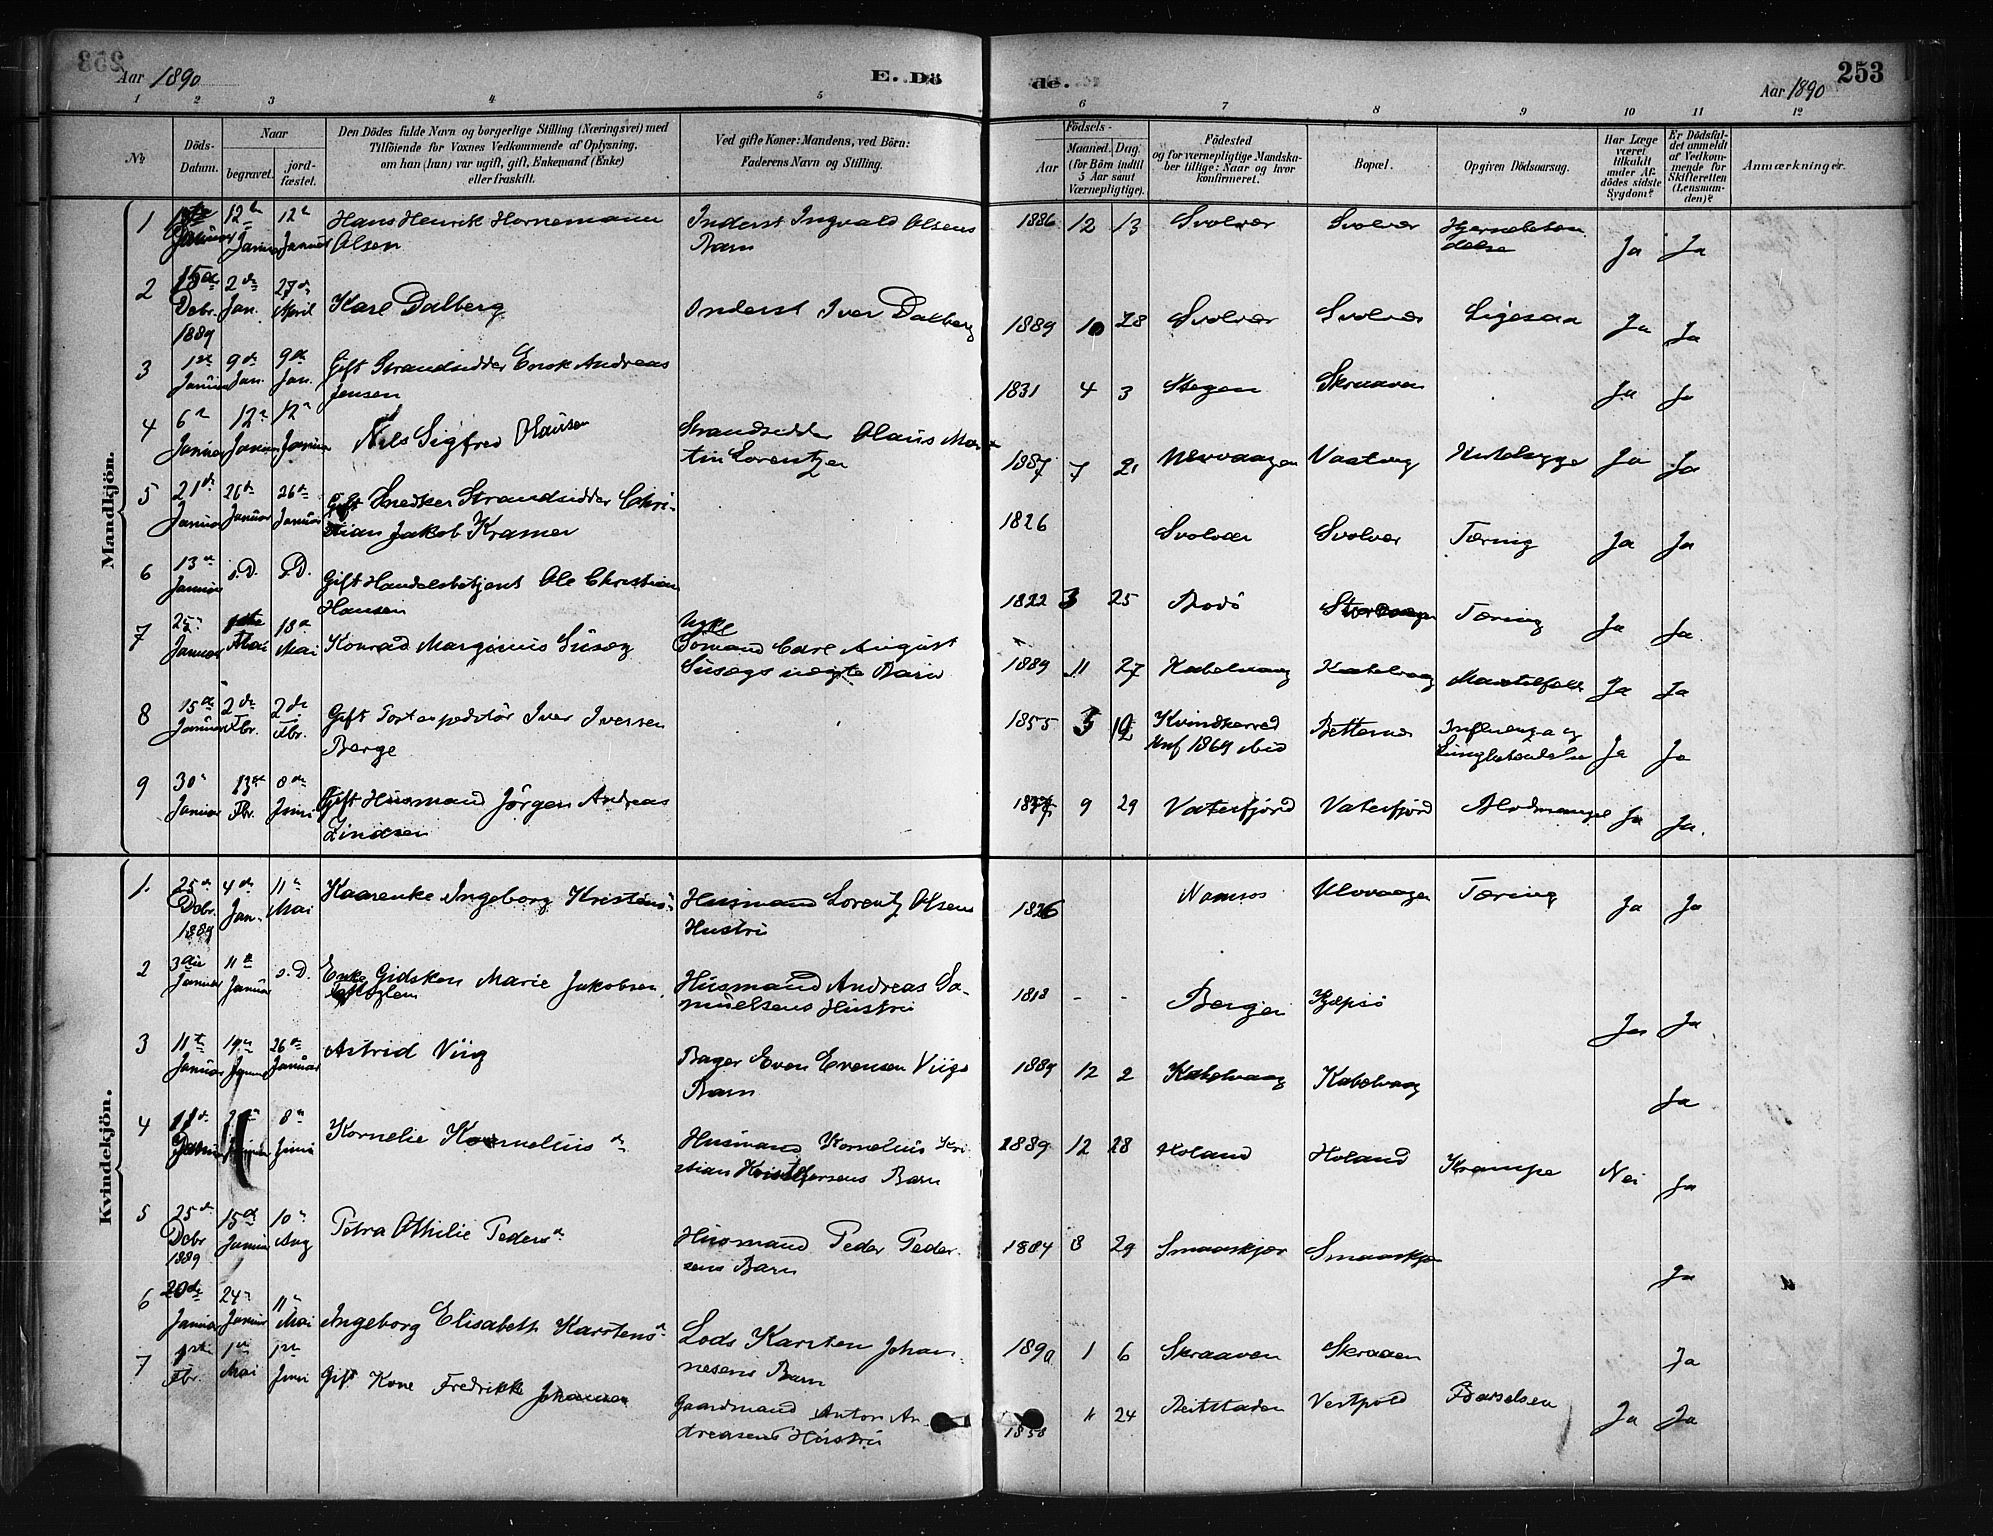 Aar 1890
E. Dö
de.
253
Aar 1890
1 2 3 4 5 6 7 8 9 10 11 12
No
Döds-
Datum.
Naar
begravet.
jord-
fæstet.
Den Dödes fulde Navn og borgerlige Stilling (Næringsvei) med
Tilföiende for Voxnes Vedkommende af Oplysning,
om han (hun) var ugift, gift, Enkemand (Enke)
eller fraskilt.
Ved gifte Koner: Mandens, ved Börn:
Faderens Navn og Stilling.
Födsels-
Aar
Maaned. Dag.
(for Börn indtil
5 Aar samt
Værnepligtige).
Födested
og for værnepligtige Mandska-
ber tillige: Naar og hvor
konfirmeret.
Bopæl.
Opgiven Dödsaarsag.
Har Læge
været
tilkaldt
under Af-
dödes sidste
Sygdom?
Er Dödsfal-
det anmeldt
af Vedkom-
mende for
Skifteretten
(Lensman-
den)?
Anmærkninger.
Mandkjön.
1 Januar 12 Januar 12 Januar Hans Henrik Hornemann
Olsen
Inderst Ingvald Olsens
Barn
1886 12 13 Svolvær Svolvær Hjernebeten
delse Ja Ja
2 15de Decbr. 1889 2den Jan. 27de April Karl Dalberg
Inderst Iver Dalberg
1889 10 28 Svolvær Svolvær Ligesaa Ja Ja
3 1ste Januar 9de Jan. 9de Jan. Gift Strandsidder Enok Andreas
Jensen
1831 4 3 Stegen Skraaven Ja Ja
4 6 Januar 12 Januar 12 Januar Nils Sigfred Olausen
Strandsidder Olaus Mar
tin Lorentzen
1887 7 21 Vaatvog Ja Ja
5 21de Januar 26de Januar 26de Januar Gift Snedker Strandsidder Chri-
stian Jakob Kramer
1826 Svolvær Svolvær Tæring Ja Ja
6 13de Januar s.D. s.D. Gift Handelsbetjent Ole Christian
Hansen
1822 3 25 Bodö Storvaagen Tæring Ja Ja
7 25 Januar Mai 18de Mai Konrad Marginius Susæg
Sömand Carl August
Susægs uægte Barn
1889 11 27 Kabelvaag Kabelvaag Ja Ja
8 15de Januar 2den Fbr. 2den Fbr. Gift Postexpeditör Iver Iversen
Berge
1855 3 12 Kvindherred
Knf 1869 ibid
Influenza og
Lungbetendelse Ja Ja
9 30 Januar 13de Fbr. 8de Juni Gift Husmand Jörgen Andreas
Zindsen
9 29 Vaterfjord Vaterfjord Blodmangel Ja Ja.
Kvindekjön.
1. 25de Dcbr. 1889 4de Jan. 11 Mai Kaarenke Ingeborg Kristens
Husmand Lorentz Olsens
Hustru
1826 Namsos Ulvvaagen Tæring Ja Ja
2 3die Januar 11te Januar s.D. Enke Gidsken Marie Jakobsen
Husmand Andreas Sa-
muelsens Hustru
1818 - - Bergen Gjæpsö Ja Ja
3 11te Januar 19de Januar 26de Januar Astrid Viig
Bager Even Evensen Viigs
Barn
1889 12 2 Kabelvaag Kabelvaag Ja
4 Januar 8de Juni Kornelie Kornelius
Husmand Kornelius Kri
stian Kristoffersens Barn
1889 12 28 Holand Holand Krampe Nei Ja
5 25de Dcbr 1889 15de Januar 10 Aug Petra Othilie Peders
Husmand Peder Peder
sens Barn
1884 8 29 Smaaskjær Smaaskjær Ja
6 20de Januar 24 Januar 11 Mai Ingeborg Elisabeth Karstens
Lods Karsten Johan-
nesens Barn
1890 1 6 Skraaven Skraaven Ja
7 1ste Fbr. 1ste Mai 1ste Juni Gift Kone Fredrikke Johannsen
Gaardmand Anton An
dreasens Hustru
1858 11 24 Beitstaden Vestpold Barselseng Ja Ja